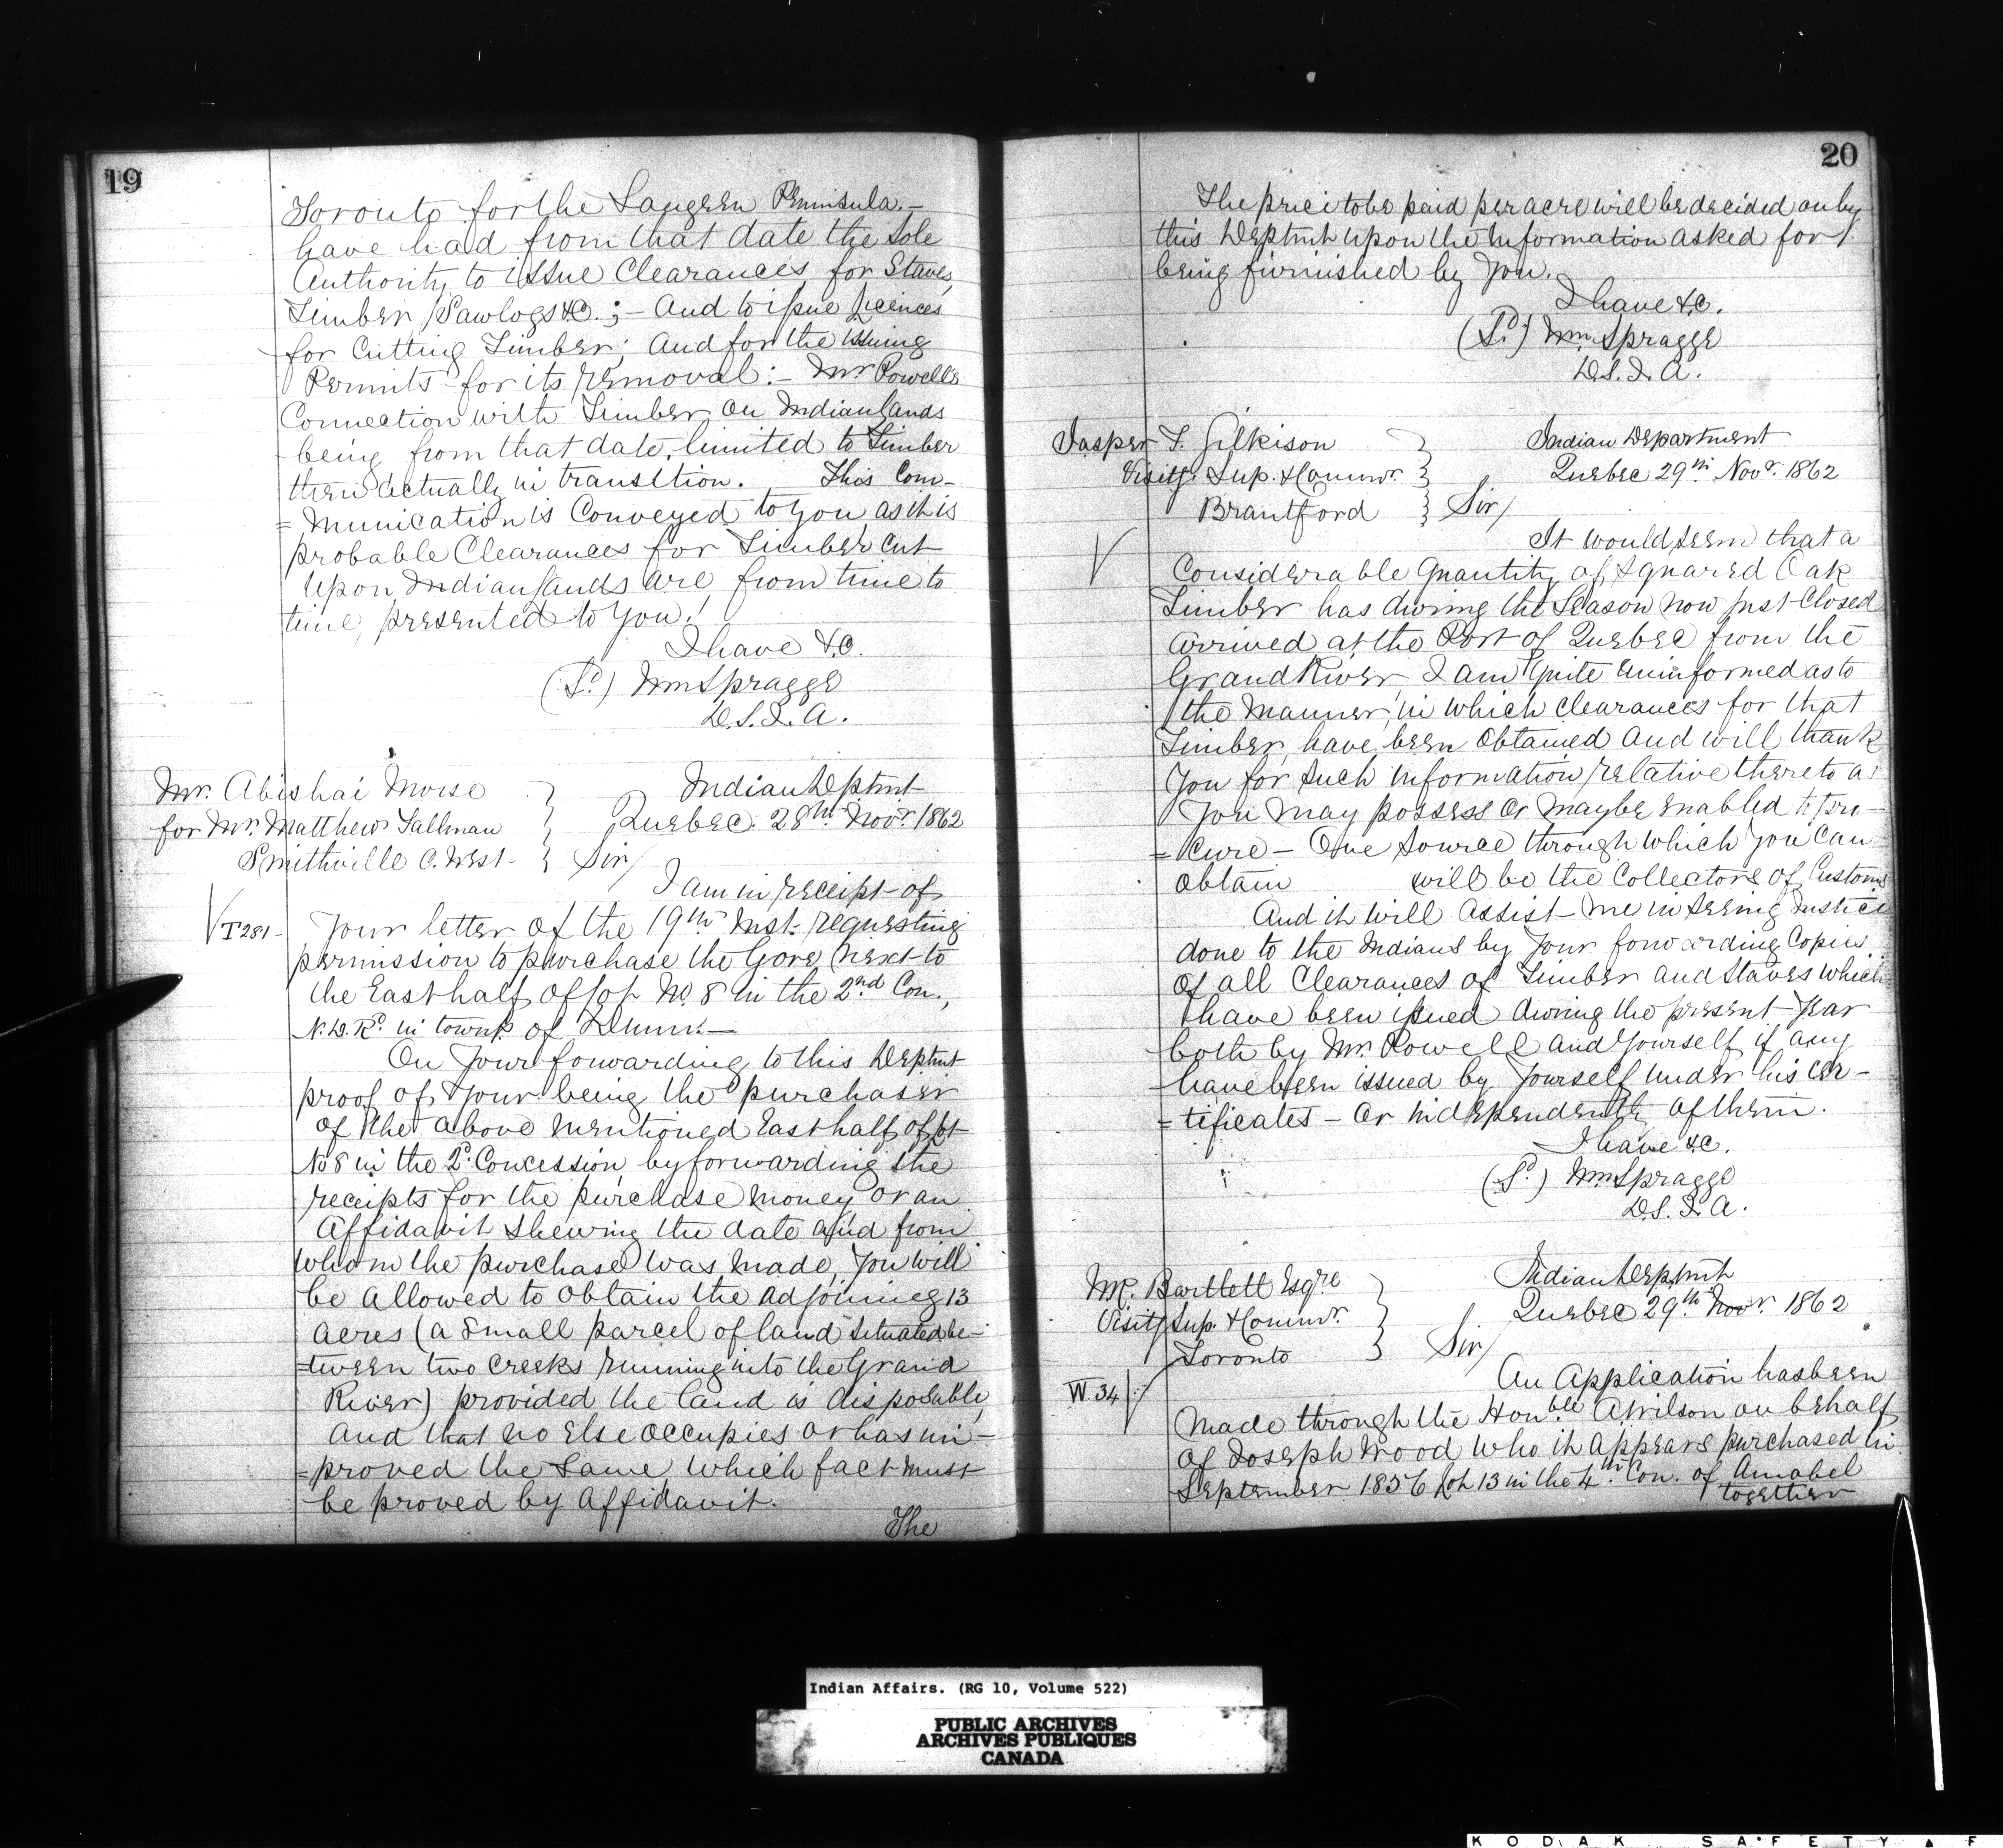 19
Toronto for the Saugeen Peninsula.—
have had from that date the Sole
Authority to issue Clearances for Staves,
Timber, Sawlogs &C.; — And to issue licences
for Cutting Timber; And for the issuing
Permits for its removal: — Mr Powell's
Connection with Timber on Indian Lands
being from that date, limited to Timber
then actually in transition. This Com-
=munication is Conveyed to you, as it is
probable Clearances for Timber cut
upon Indian Lands are from time to
time, presented to you!
I have &C.
(Sd.) Wm Spragge
D.S.I.A.
Mr. Abishai Morse
for Mr. Matthew Tallman
Smithville C. West
Indian Deptmt
Quebec. 28th Novr. 1862
Sir/
I am in receipt of
T281-
Your letter of the 19th Inst. requesting
permission to purchase the Gore next to
the East half of lot No. 8 in the 2nd Con.,
N.D.Rd. in townp. of Dunn.—
On Your forwarding to this Deptmt
proof of your being the purchaser
of the above mentioned East half of lot
No 8 in the 2d. Concession, by forwarding the
receipts for the purchase money or an
Affidavit shewing the date and from
whom the purchase was made, You will
be allowed to obtain the adjoining 13
acres (a small parcel of land situated be-
=tween two creeks running into the Grand
River) provided the land is disposable,
and that no Else occupies or has im-
=proved the same, which fact must
be proved by Affidavit.
The
20
The price to be paid per acre will be decided on by
this Deptmt upon the information asked for
being furnished by you.
I have &c.
(Sd.) Wm Spragge
D.S.I.A.
Jasper T. Gilkison
Visitg. Sup. & Commr.
Brantford
Indian Department
Quebec 29th Novr. 1862
Sir/
It would seem that a
Considerable Quantity of squared Oak
Timber has during the Season now just closed
arrived at the Port of Quebec from the
Grand River. I am quite uninformed as to
the Manner, in which clearances for that
Timber, have been obtained and will thank
You for such information relative thereto as
You may possess or maybe enabled to pro-
=cure — One source through which you can
obtain will be the Collectors of Customs
And it will assist me in seeing Justice
done to the Indians by your forwarding copies
of all Clearances of Timber and Staves which
have been issued during the present Year
both by Mr. Powell and yourself if any
have been issued by yourself under his cer-
=tificates — or independently of them.
I have &c.
(Sd.) Wm Spragge
D.S.I.A.
Mr. Bartlett Esqre
Visitg Sup. & Commr.
Toronto
Indian Deptmt
Quebec 29th Novr. 1862
Sir/
An Application has been
W.34
made through the Honble A Wilson on behalf
of Joseph Wood who it appears purchased in
September 1856 lot 13 in the 4th Con. of Amabel
together
Indian Affairs. (RG 10, Volume 522)
PUBLIC ARCHIVES
ARCHIVES PUBLIQUES
CANADA
KODAK SAFETY ▲ F